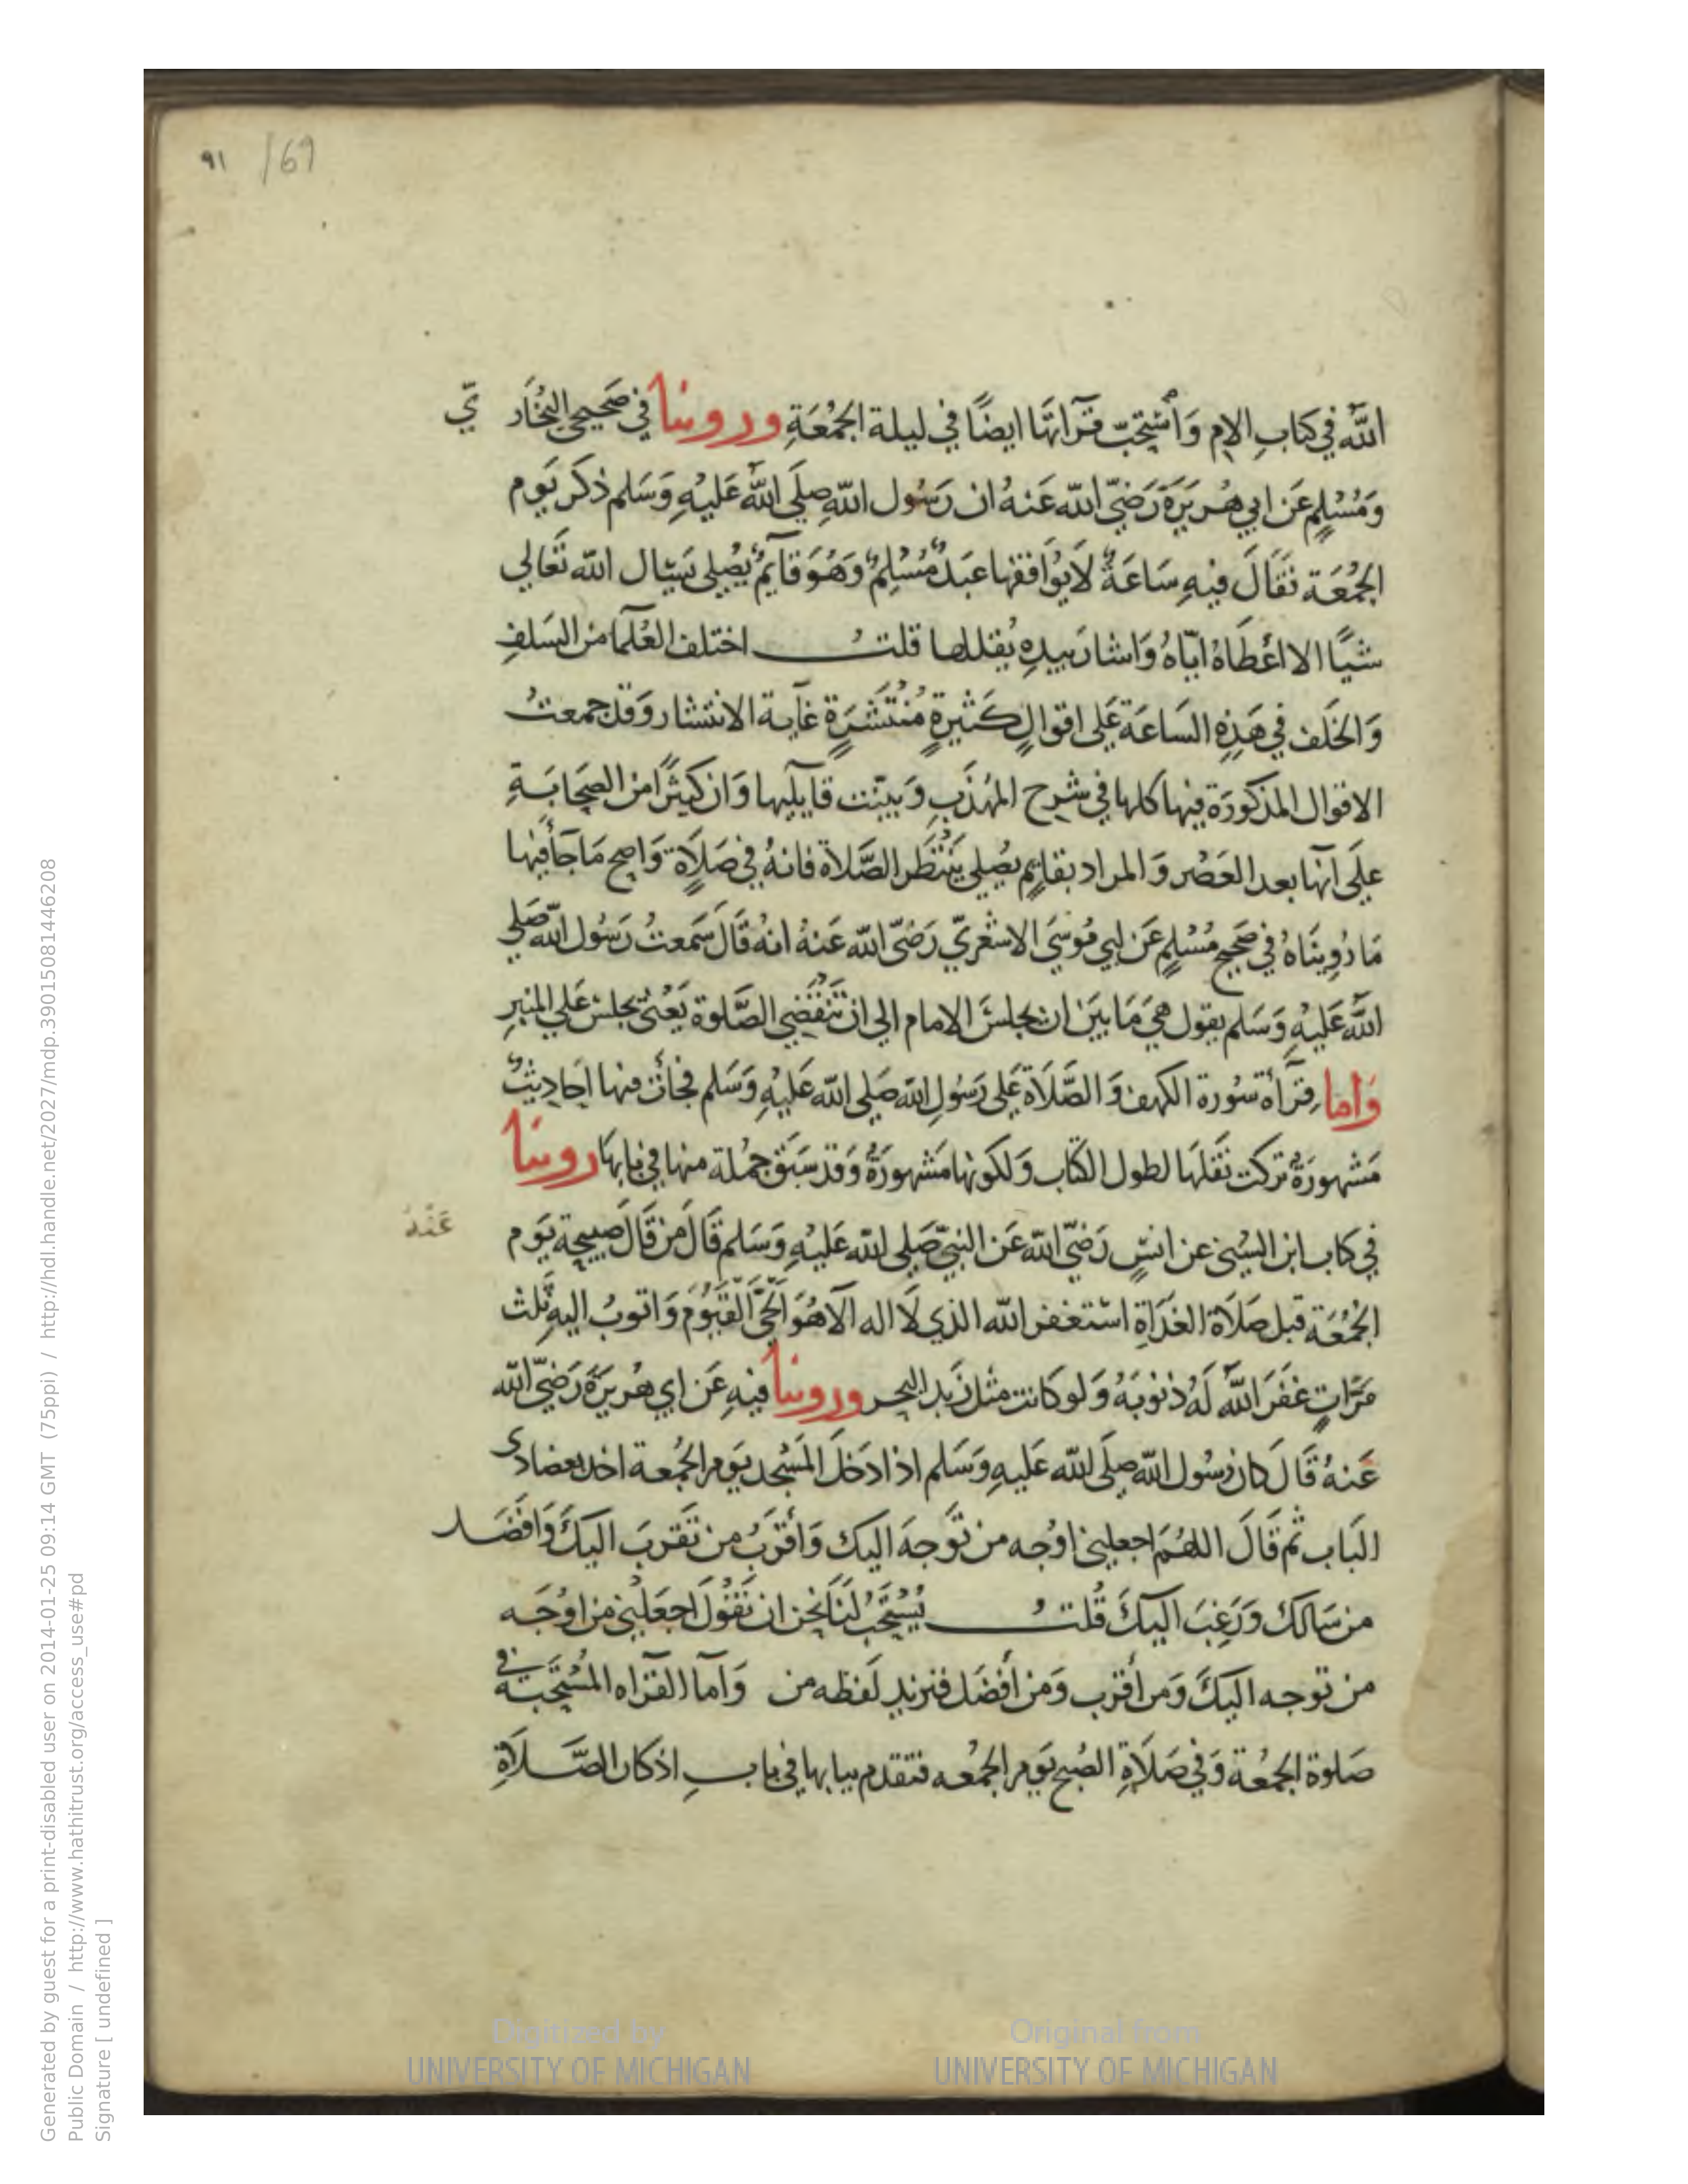 ٩١ /69
اللّه في كتابِ الام وَأستحبّ قرآتها ايضًا في ليلة الجُمُعَةِ وروينا في صَحيحي البُخَاري
وَمُسْلِمٍ عَن ابي هُرَيرَة رَضيّ الله عَنهُ ان رَسُول اللّهِ صلي اللّه عَليْهِ وَسَلم ذكر يَوم
الجُمُعَة فقَالَ فيهِ سَاعَةٌ لَا يوُافقها عبَدٌ مُسْلِمٌ وَهُوَ قايمٌ يُصلي يَسئال الله تعَالي
شيًا الا اعْطَاهُ ايّاهُ وَاشار بيدِهِ يُقللها قلتُ اختلف العُلمآ من السَلفِ
وَالخَلَف في هَذِهِ السَاعَة عَلى اقوالٍ كثيرةٍ مُنْتَشَرَةٍ غَاية الانتشار وَقد جمعتُ
الاقوال المذكورَة فيها كلها في شرح المهُذَبِ وَبينّت قايليها وَان كثيرًا من الصَحَابَةِ
علَى انها بعد العَصْر وَالمراد بقايمٍ يُصلي يَنْتَظر الصَّلاة فانهُ في صَلَاةٍ وَاصح مَا جَآ فيها
مَا رُوِينَاهُ في صَحيح مُسْلِمٍ عَن ابي مُوسَي الاشعَريّ رَضيّ الله عَنهُ انهُ قَالَ سَمعتُ رَسُول الله صَلي
اللّه عَليْهِ وَسَلم يقول هيَ مَا بيَن ان يجلسَ الامام الي ان تنقضي الصَّلوة يَعْنى يجلس عَلي المنبرِ
وَاما قِرَآة سُورة الكهف وَالصَّلَاة عَلي رَسُولِ الله صَلي الله عَليْهِ وَسَلم فجآت فيها احَاديثٌ
مَشهورَةٌ تركت نَقلهَا لطول الكتَاب وَلكونها مَشهورَةٌ وَقد سَبَق جُملة منها في بابها روينا
في كتاب ابن السُني عن انسٍ رَضيّ الله عَن النبيّ صَلي الله عَليْهِ وَسَلم قَالَ من قَالَ صَبيحة يَوم
عَنْهُ
الجُمُعَة قبل صَلَاة الغدَاةِ استغفر الله الذي لَا اله الّا هُوَ الحَيَّ القَيوُمَ وَاتوبُ اليهِ ثلث
مَرَّاتٍ غفَرَ اللّه لَهُ ذنوُبَهُ وَلو كانت مثل زَبد البحر وروينا فيهِ عَن ابي هُرَيرَة رَضيّ الله
عَنهُ قَالَ كان رسُول اللّه صلَي الله عَليهِ وَسَلم اذا دَخلَ المَسْجد يَوم الجُمعة اخذ بعضادى
البَاب ثمّ قَالَ اللهُمَ اجعلني اوُجه من توَّجهَ اليك وَأقرَبُ من تقربَ اليكَ وَافضَل
من سَالك وَرَغِبَ اليكَ قُلتُ يُسْتَحَبُ لنَا نحن ان نَقوُلَ اجعَلني من اوُجَه
من توجه اليكَ وَمن أقرَب وَمن أفضَل فنزيد لَفظه من وَامّا القرَاه المُسْتَحَبة في
صَلوة الجُمُعة وَفي صَلَاةِ الصُبح يَوم الجُمعُه فتقدم بيابها في بابِ اذكار الصَّلَاةِ
Digitized by UNIVERSITY OF MICHIGAN
Original from UNIVERSITY OF MICHIGAN
Generated by guest for a print-disabled user on 2014-01-25 09:14 GMT (75ppi) / http://hdl.handle.net/2027/mdp.39015081446208
Public Domain / http://www.hathitrust.org/access_use#pd
Signature [ undefined ]